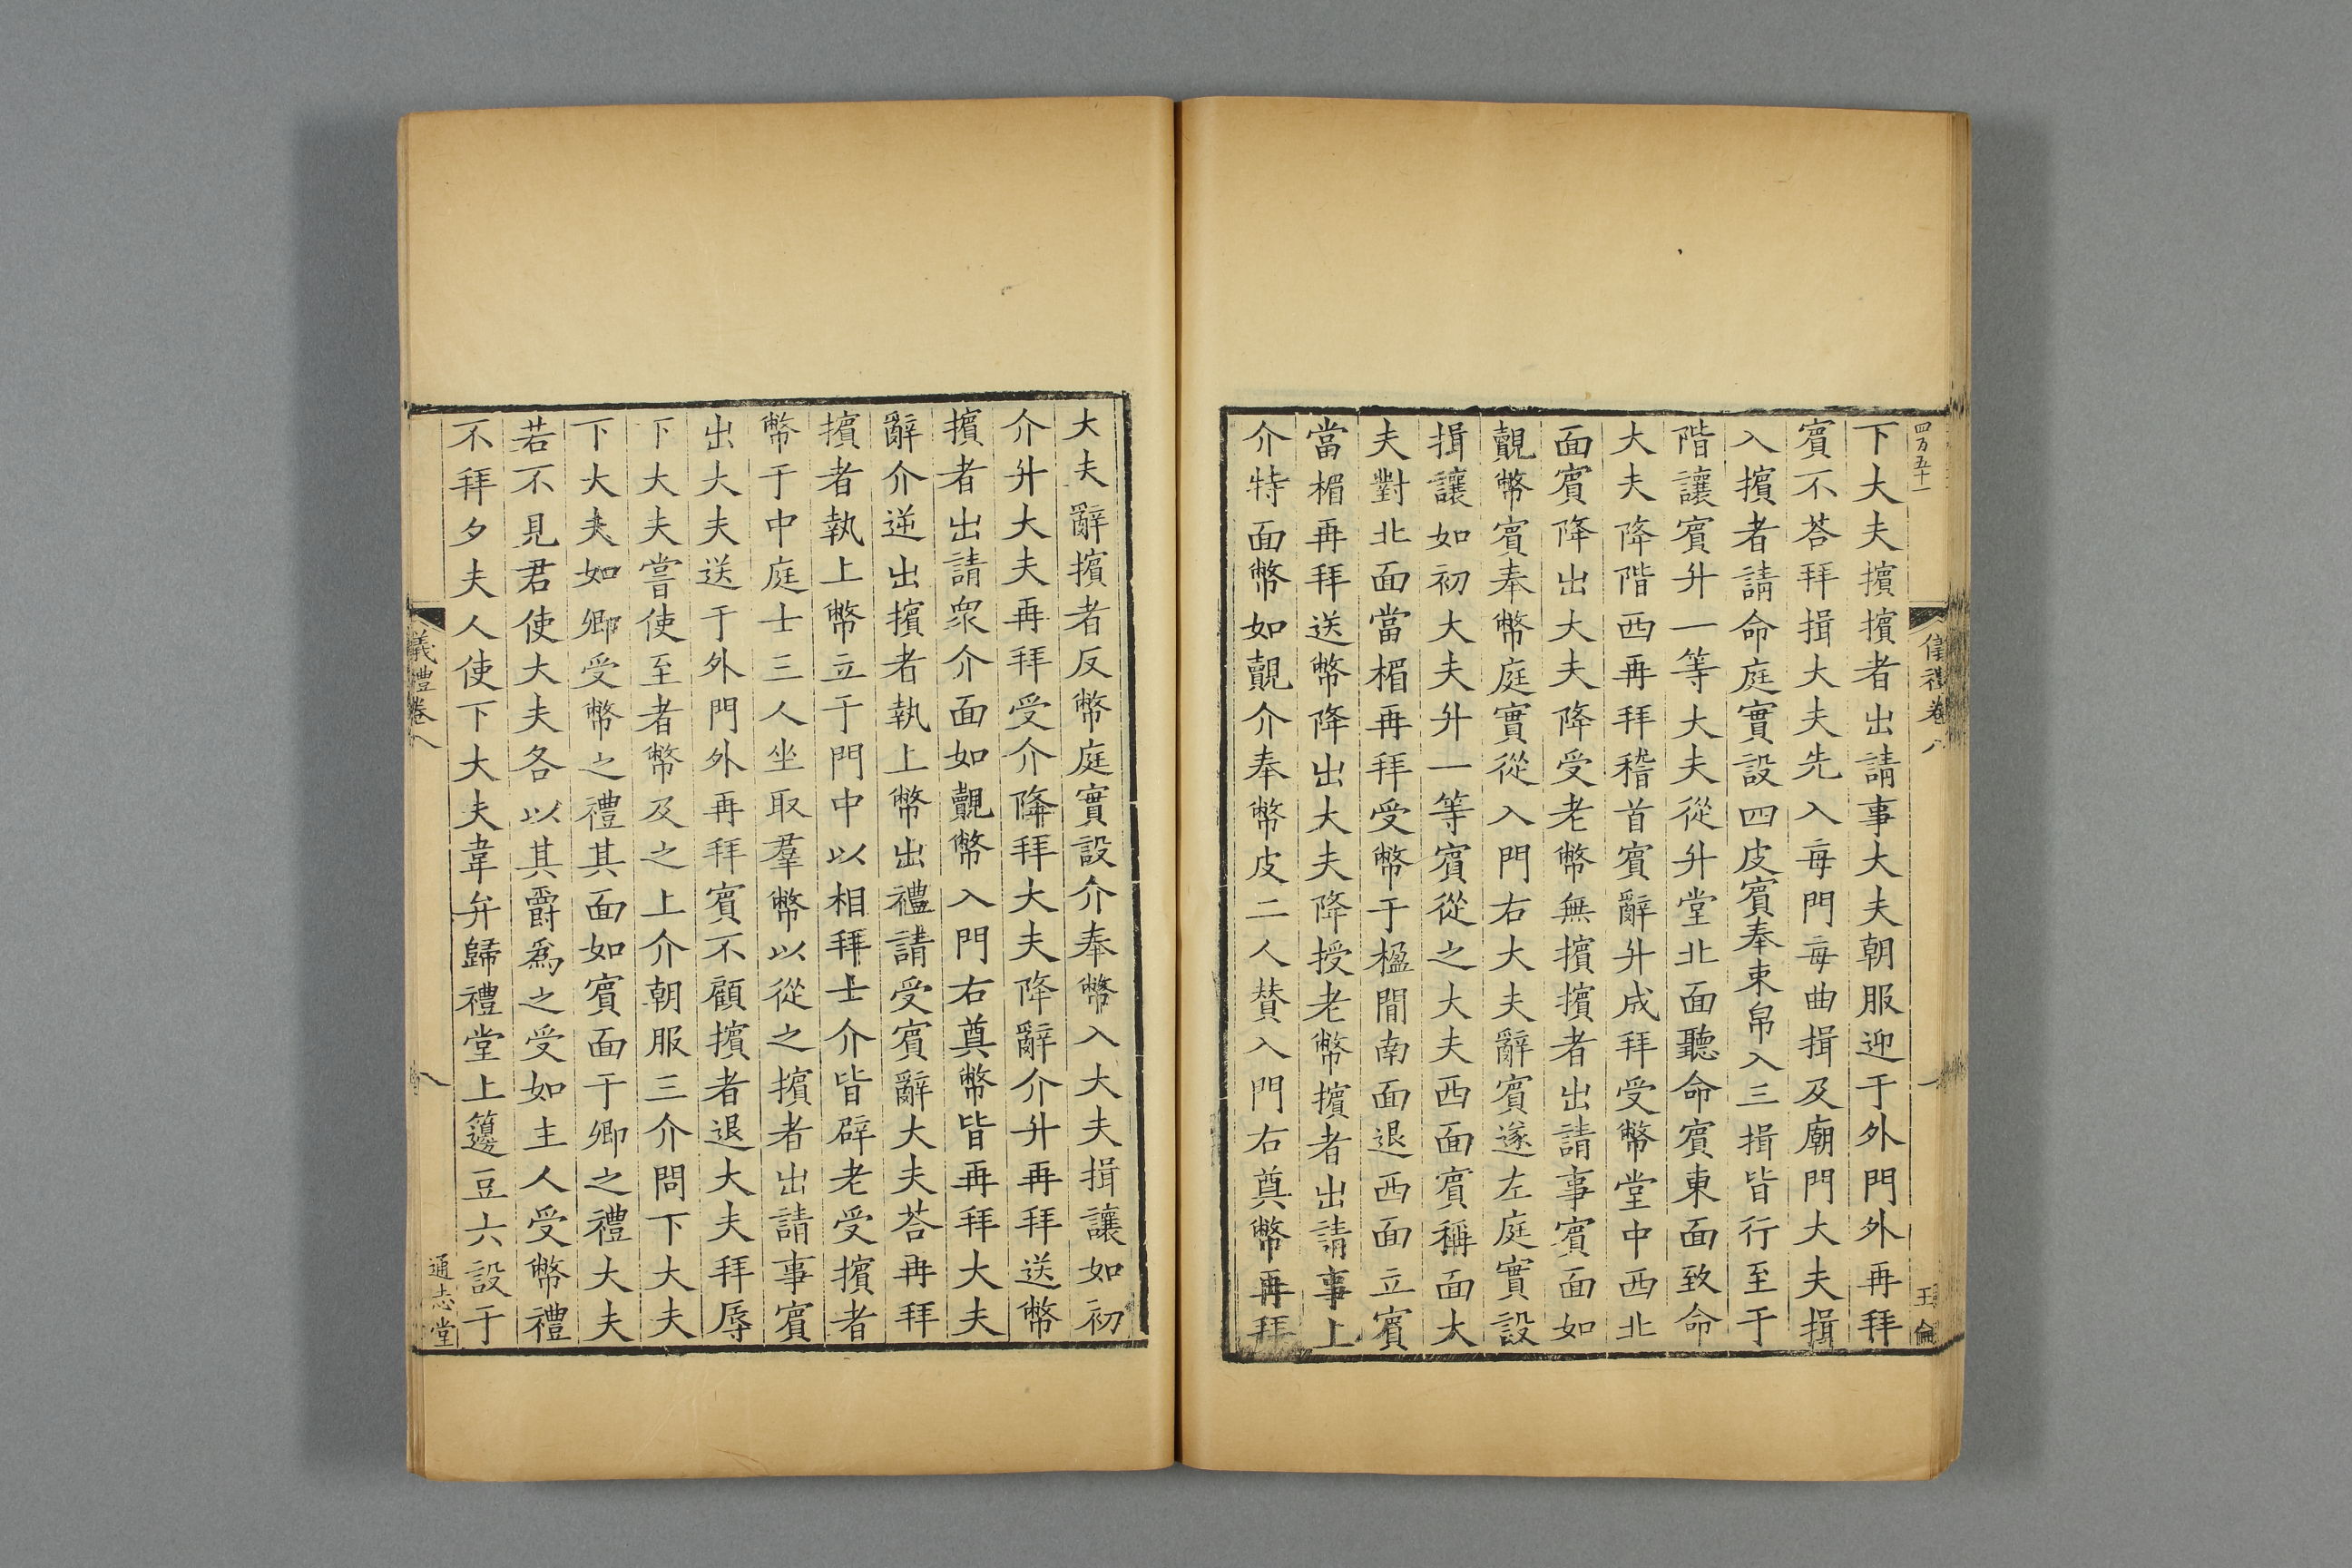 四万五十一
儀禮卷八
王倫
下大夫擯擯者出請事大夫朝服迎于外門外再拜
賓不荅拜揖大夫先入每門每曲揖及廟門大夫揖
入擯者請命庭實設四皮賓奉束帛入三揖皆行至于
階讓賓升一等大夫從升堂北面聽命賓東面致命
大夫降階西再拜稽首賓辭升成拜受幣堂中西北
面賓降出大夫降受老幣無擯擯者出請事賓面如
覿幣賓奉幣庭實從入門右大夫辭賓遂左庭實設
揖讓如初大夫升一等賓從之大夫西面賓稱面大
夫對北面當楣再拜受幣于楹間南面退西面立賓
當楣再拜送幣降出大夫降授老幣擯者出請事上
介特面幣如覿介奉幣皮二人贊入門右奠幣再拜
大夫辭擯者反幣庭實設介奉幣入大夫揖讓如初
介升大夫再拜受介降拜大夫降辭介升再拜送幣
擯者出請衆介面如覿幣入門右奠幣皆再拜大夫
辭介逆出擯者執上幣出禮請受賓辭大夫荅再拜
擯者執上幣立于門中以相拜士介皆辟老受擯者
幣于中庭士三人坐取羣幣以從之擯者出請事賓
出大夫送于外門外再拜賓不顧擯者退大夫拜辱
下大夫嘗使至者幣及之上介朝服三介問下大夫
下大夫如卿受幣之禮其面如賓面于卿之禮大夫
若不見君使大夫各以其爵爲之受如主人受幣禮
不拜夕夫人使下大夫韋弁歸禮堂上籩豆六設于
儀禮卷八
八
通志堂